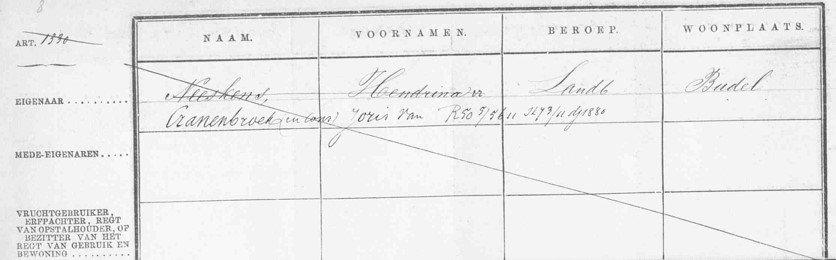 NAAM. VOORNAMEN. BEROEP. WOONPLAATS.
ART. 1330
EIGENAAR Neeskens, Hendrina Landb Budel
Cranenbroek (en cons) Joris Van R50 5/56 dj 1880
MEDE-EIGENAREN
VRUCHTGEBRUIKER,
ERFPACHTER, REGT
VAN OPSTALHOUDER, OF
BEZITTER VAN HET
REGT VAN GEBRUIK EN
BEWONING